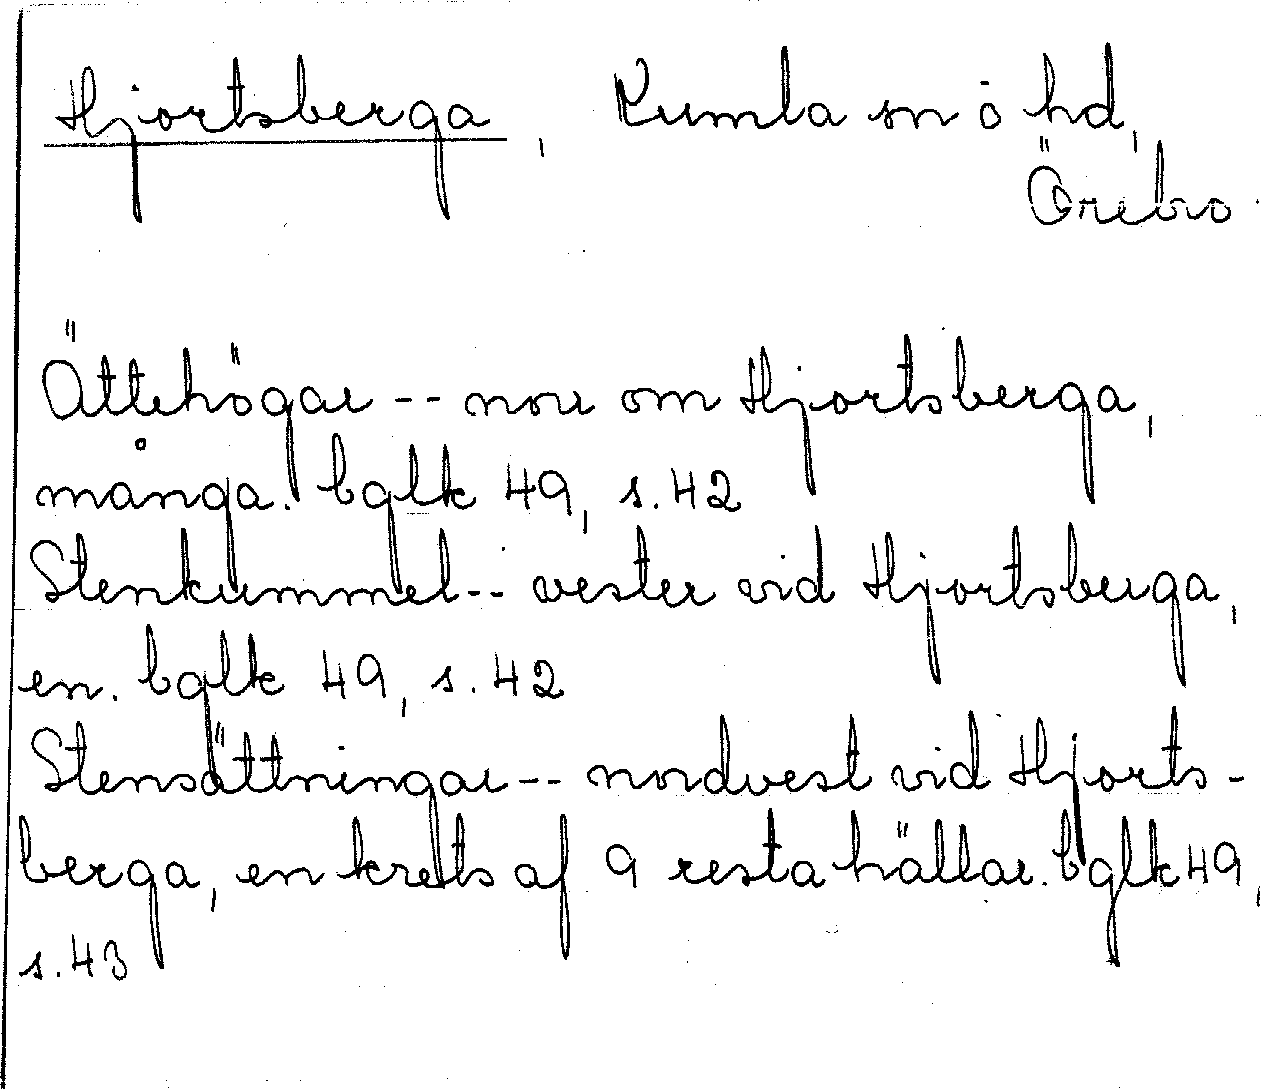 Hjortsberga, Kumla sn o hd,
Örebro
Ättehögar -- norr om Hjortsberga,
många. bglk 49, s. 42
Stenkummel -- vester vid Hjortsberga,
en. bglk 49, s. 42
Stensättningar -- nordvest vid Hjorts-
berga, en krets af 9 resta hällar. bglk 49,
s. 43